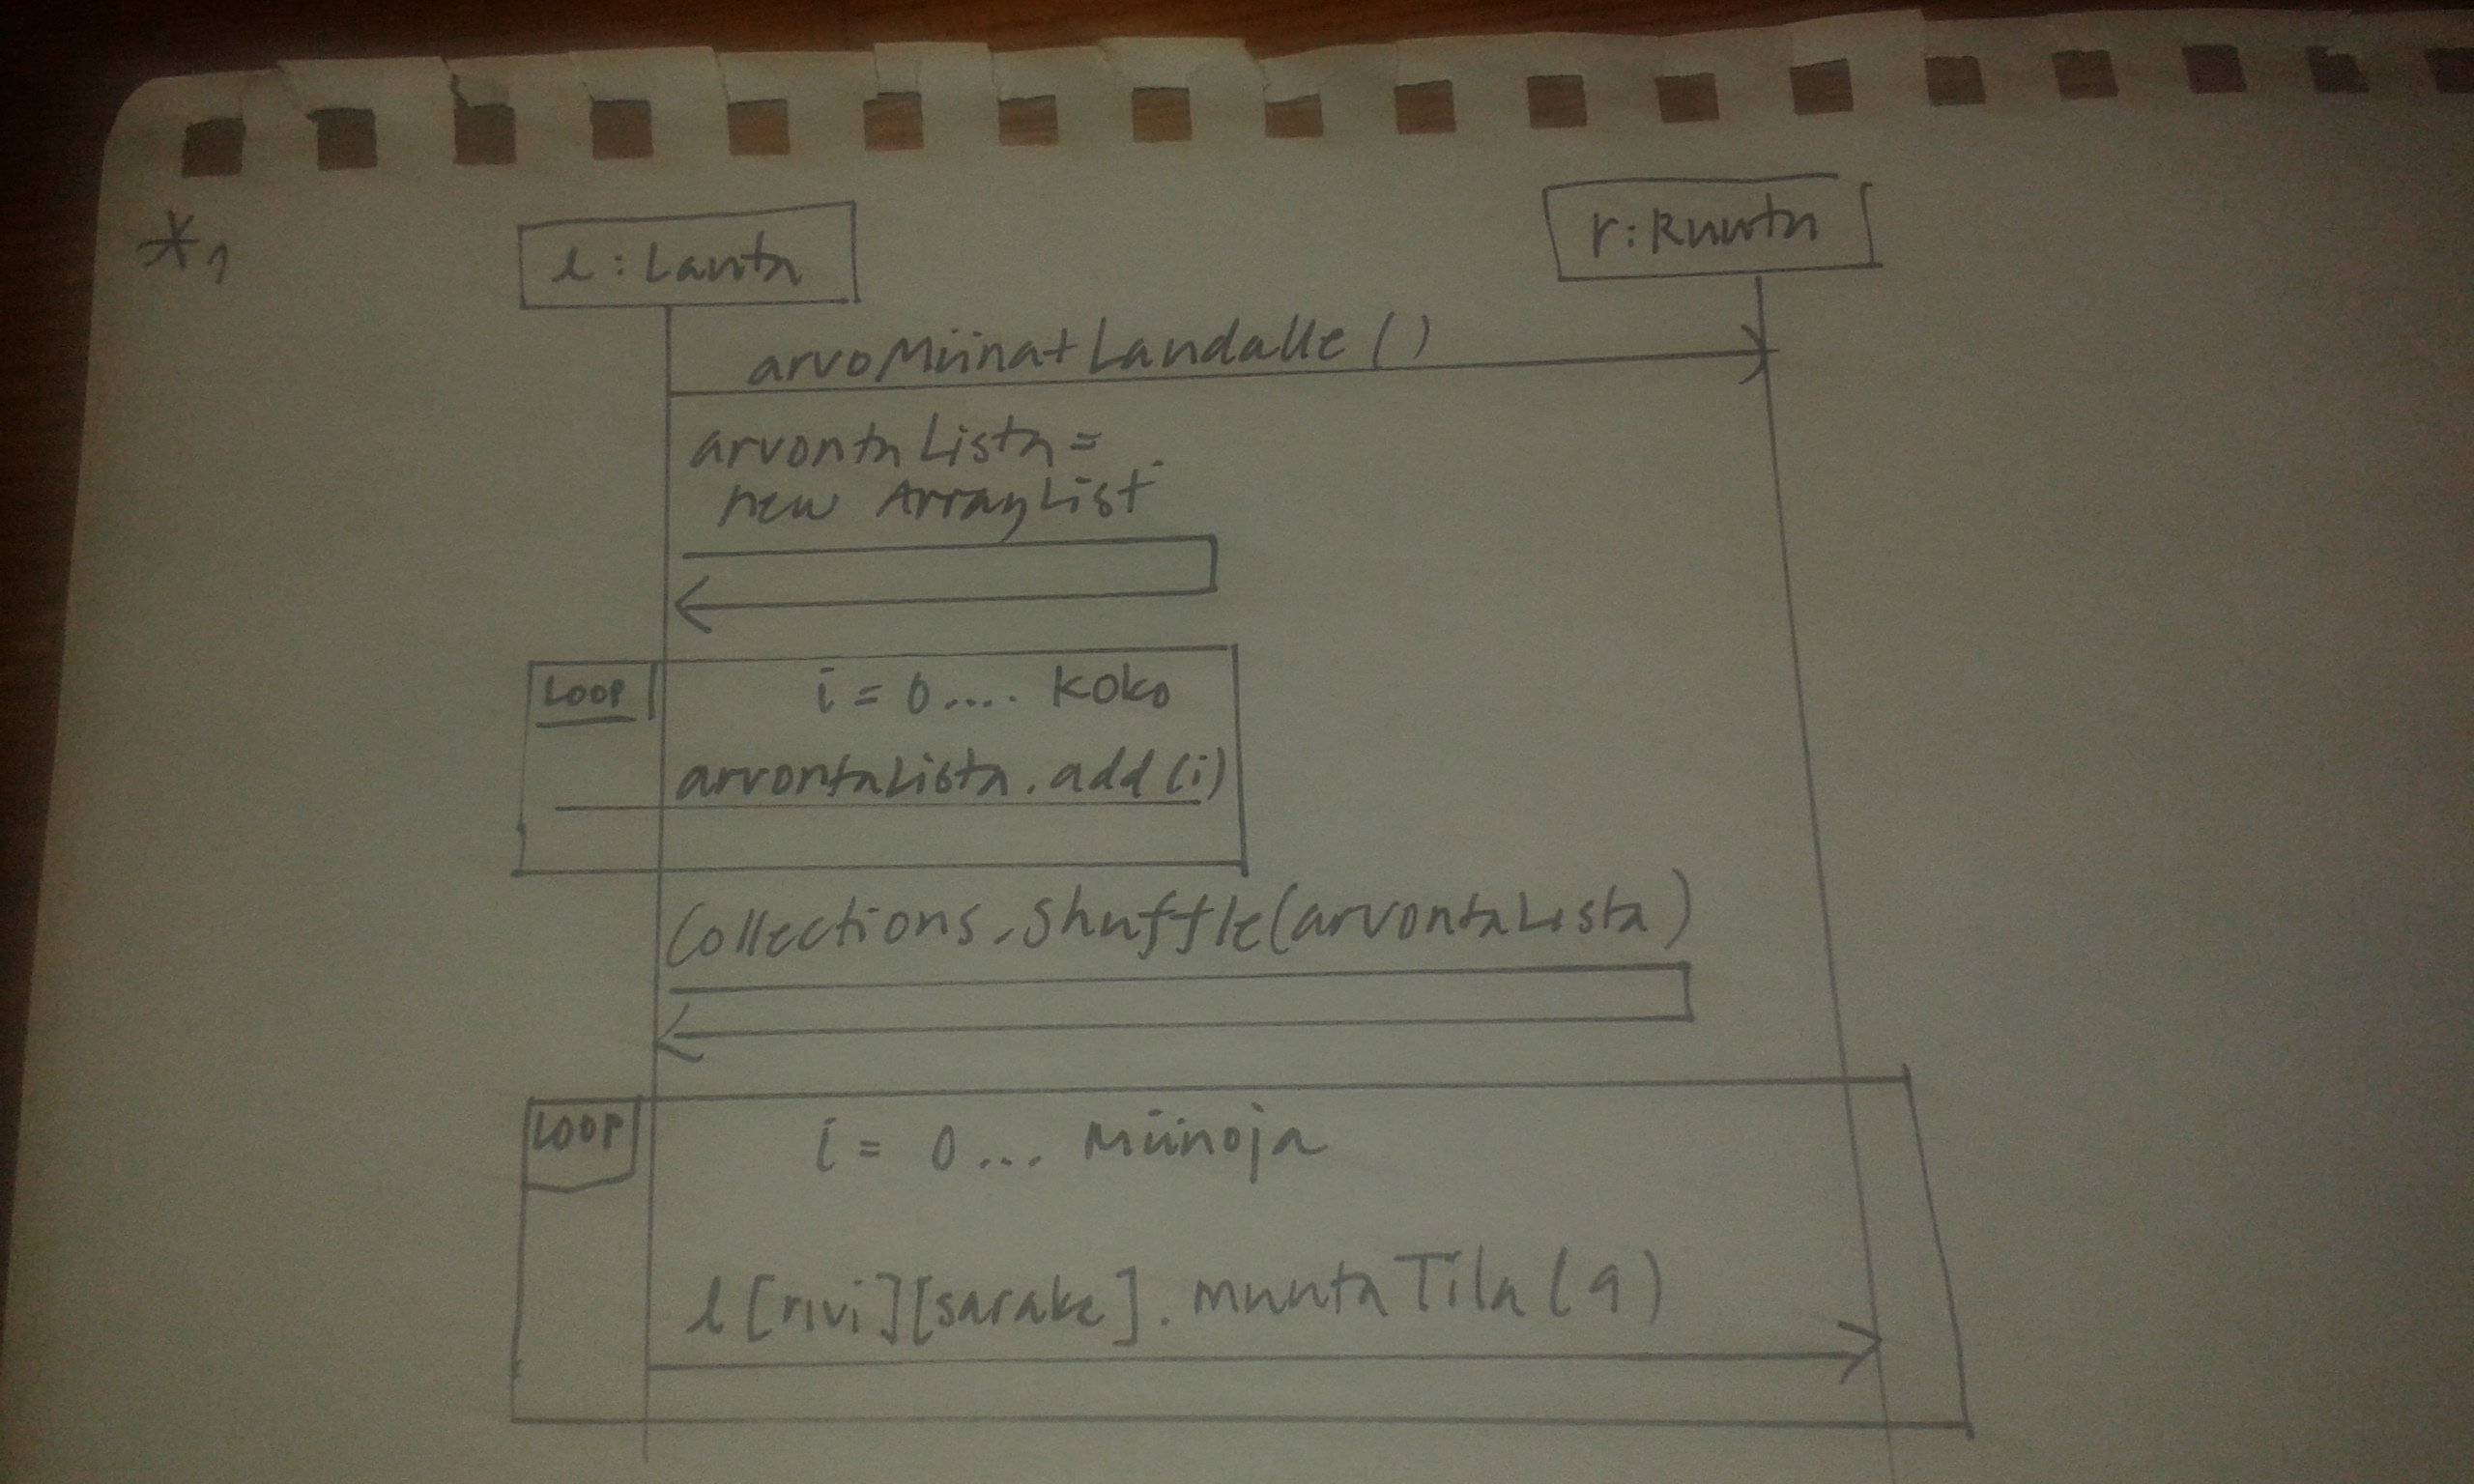 *1
l:Lauta
r:Ruutu
arvoMiinatLaudalle()
arvontaLista =
new ArrayList
LOOP
i = 0 ... koko
arvontaLista.add(i)
Collections.shuffle(arvontaLista)
LOOP
i = 0 ... miinoja
l[rivi][sarake].muutaTila(9)